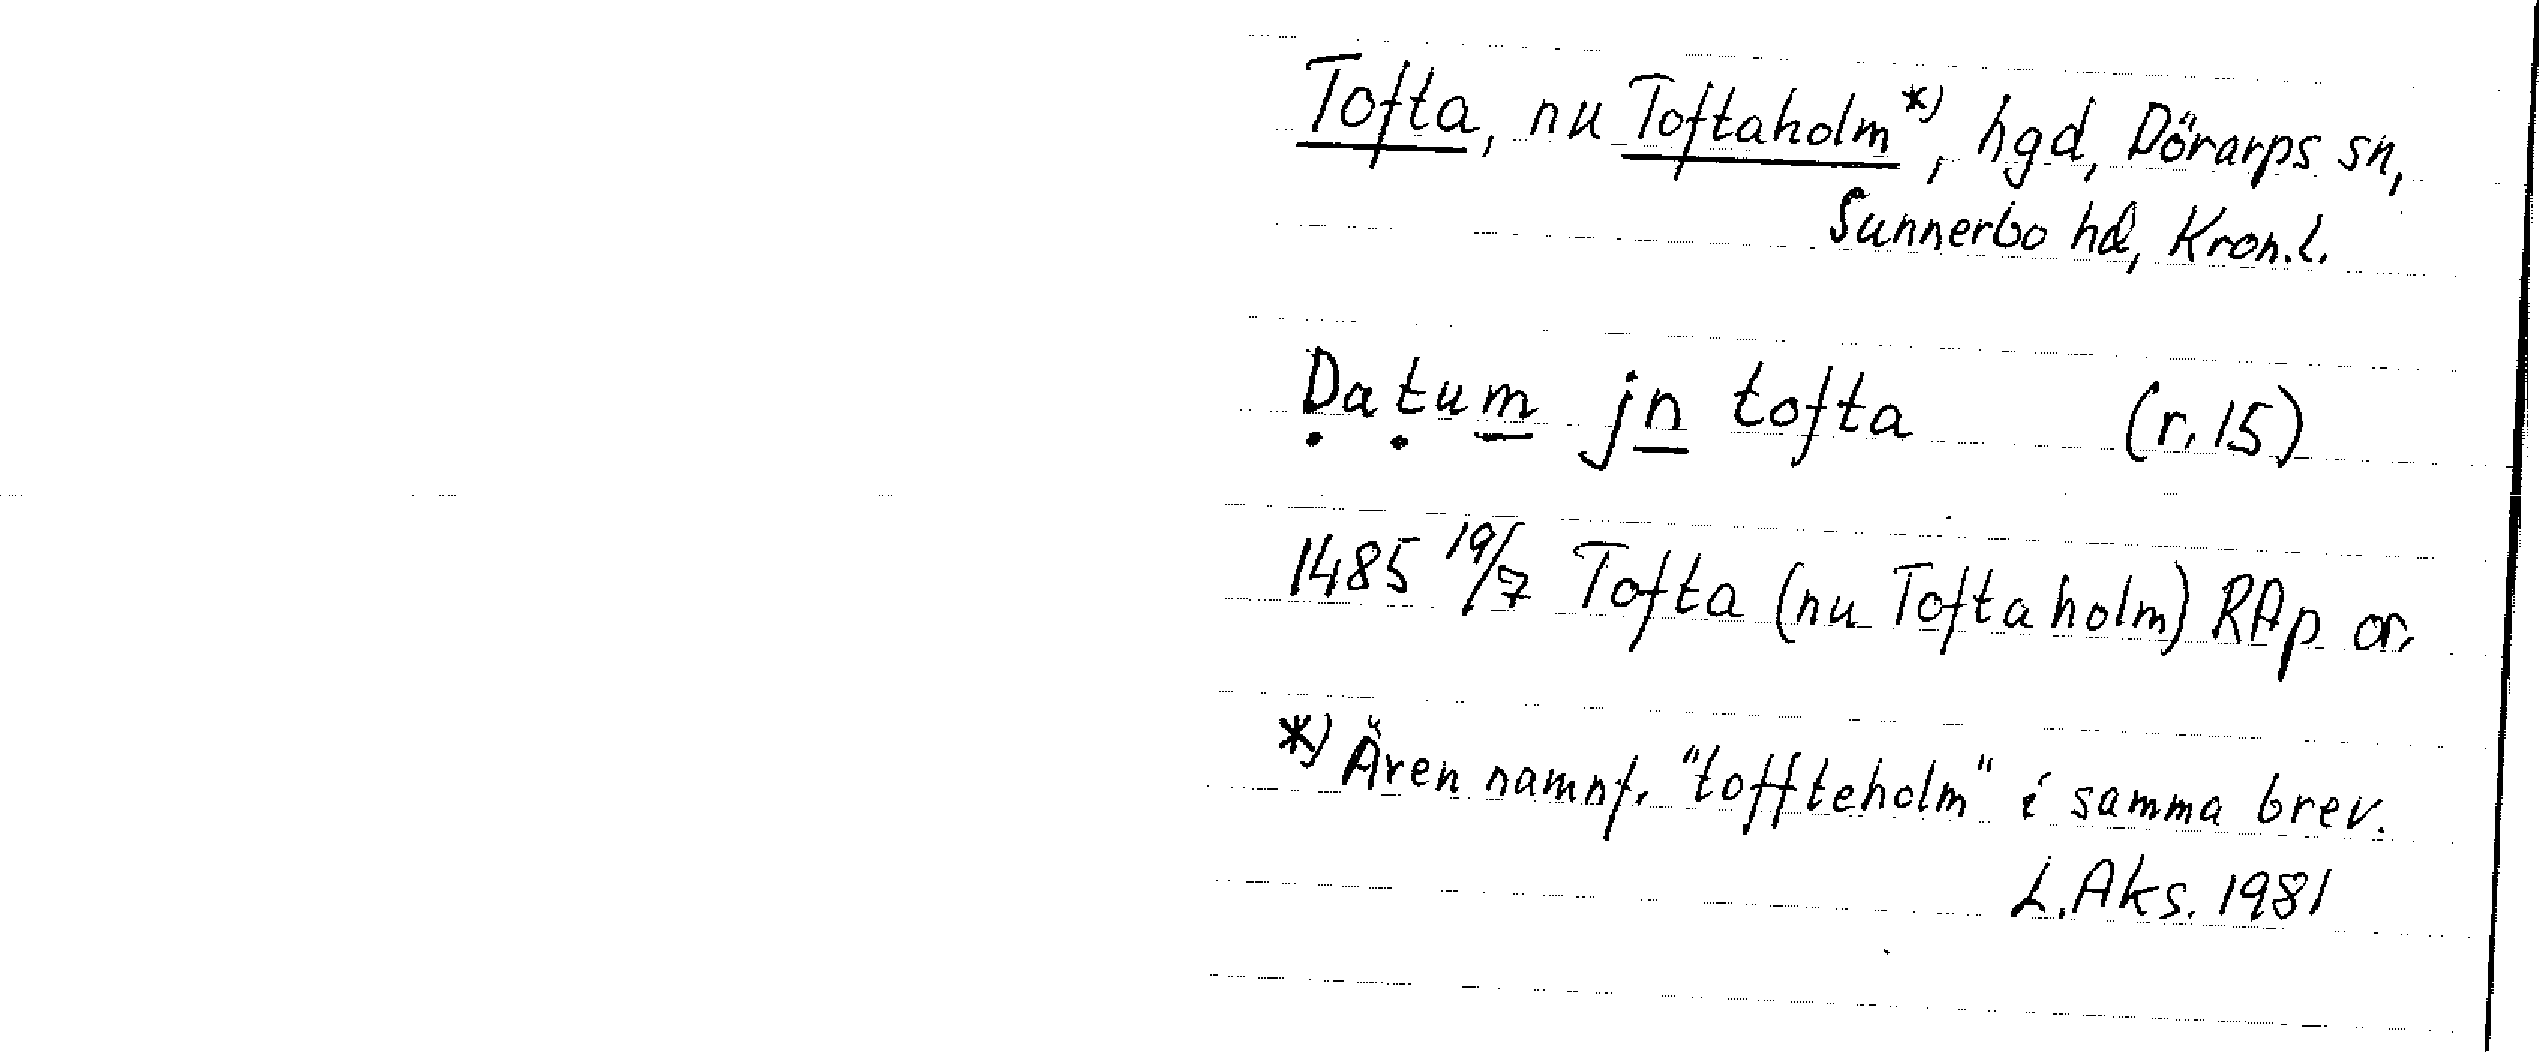 Tofta, nu Toftaholm*), hgd, Dörarps sn,
Sunnerbo hd, Kron.l.
Datum jn tofta (r.15)
1485 19/7 Tofta (nu Toftaholm) RAp or.
*) Även namnf. "toffteholm" i samma brev.
L.Aks. 1981